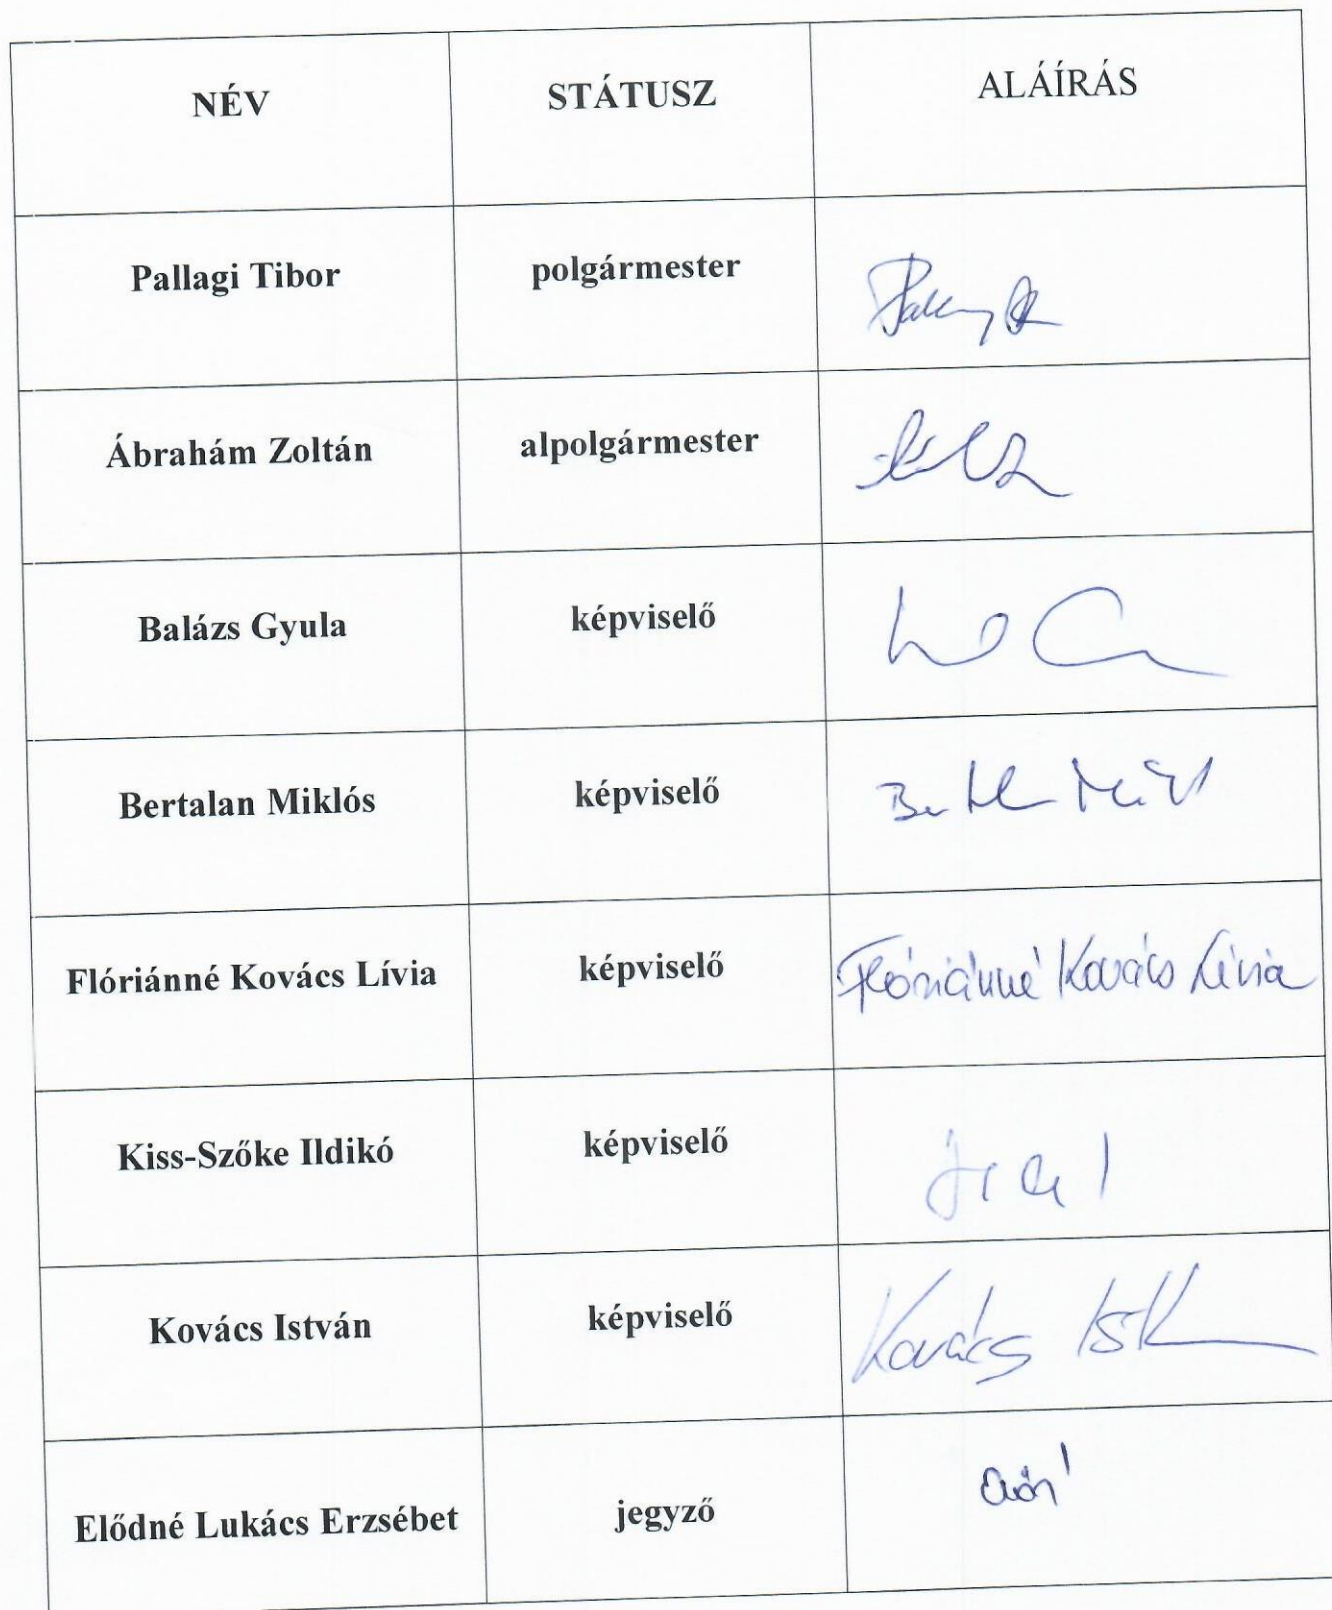 NÉV STÁTUSZ ALÁÍRÁS
Pallagi Tibor polgármester
Ábrahám Zoltán alpolgármester
Balázs Gyula képviselő
Bertalan Miklós képviselő
Flóriánné Kovács Lívia képviselő Flóriánné Kovács Lívia
Kiss-Szőke Ildikó képviselő
Kovács István képviselő Kovács
Elődné Lukács Erzsébet jegyző